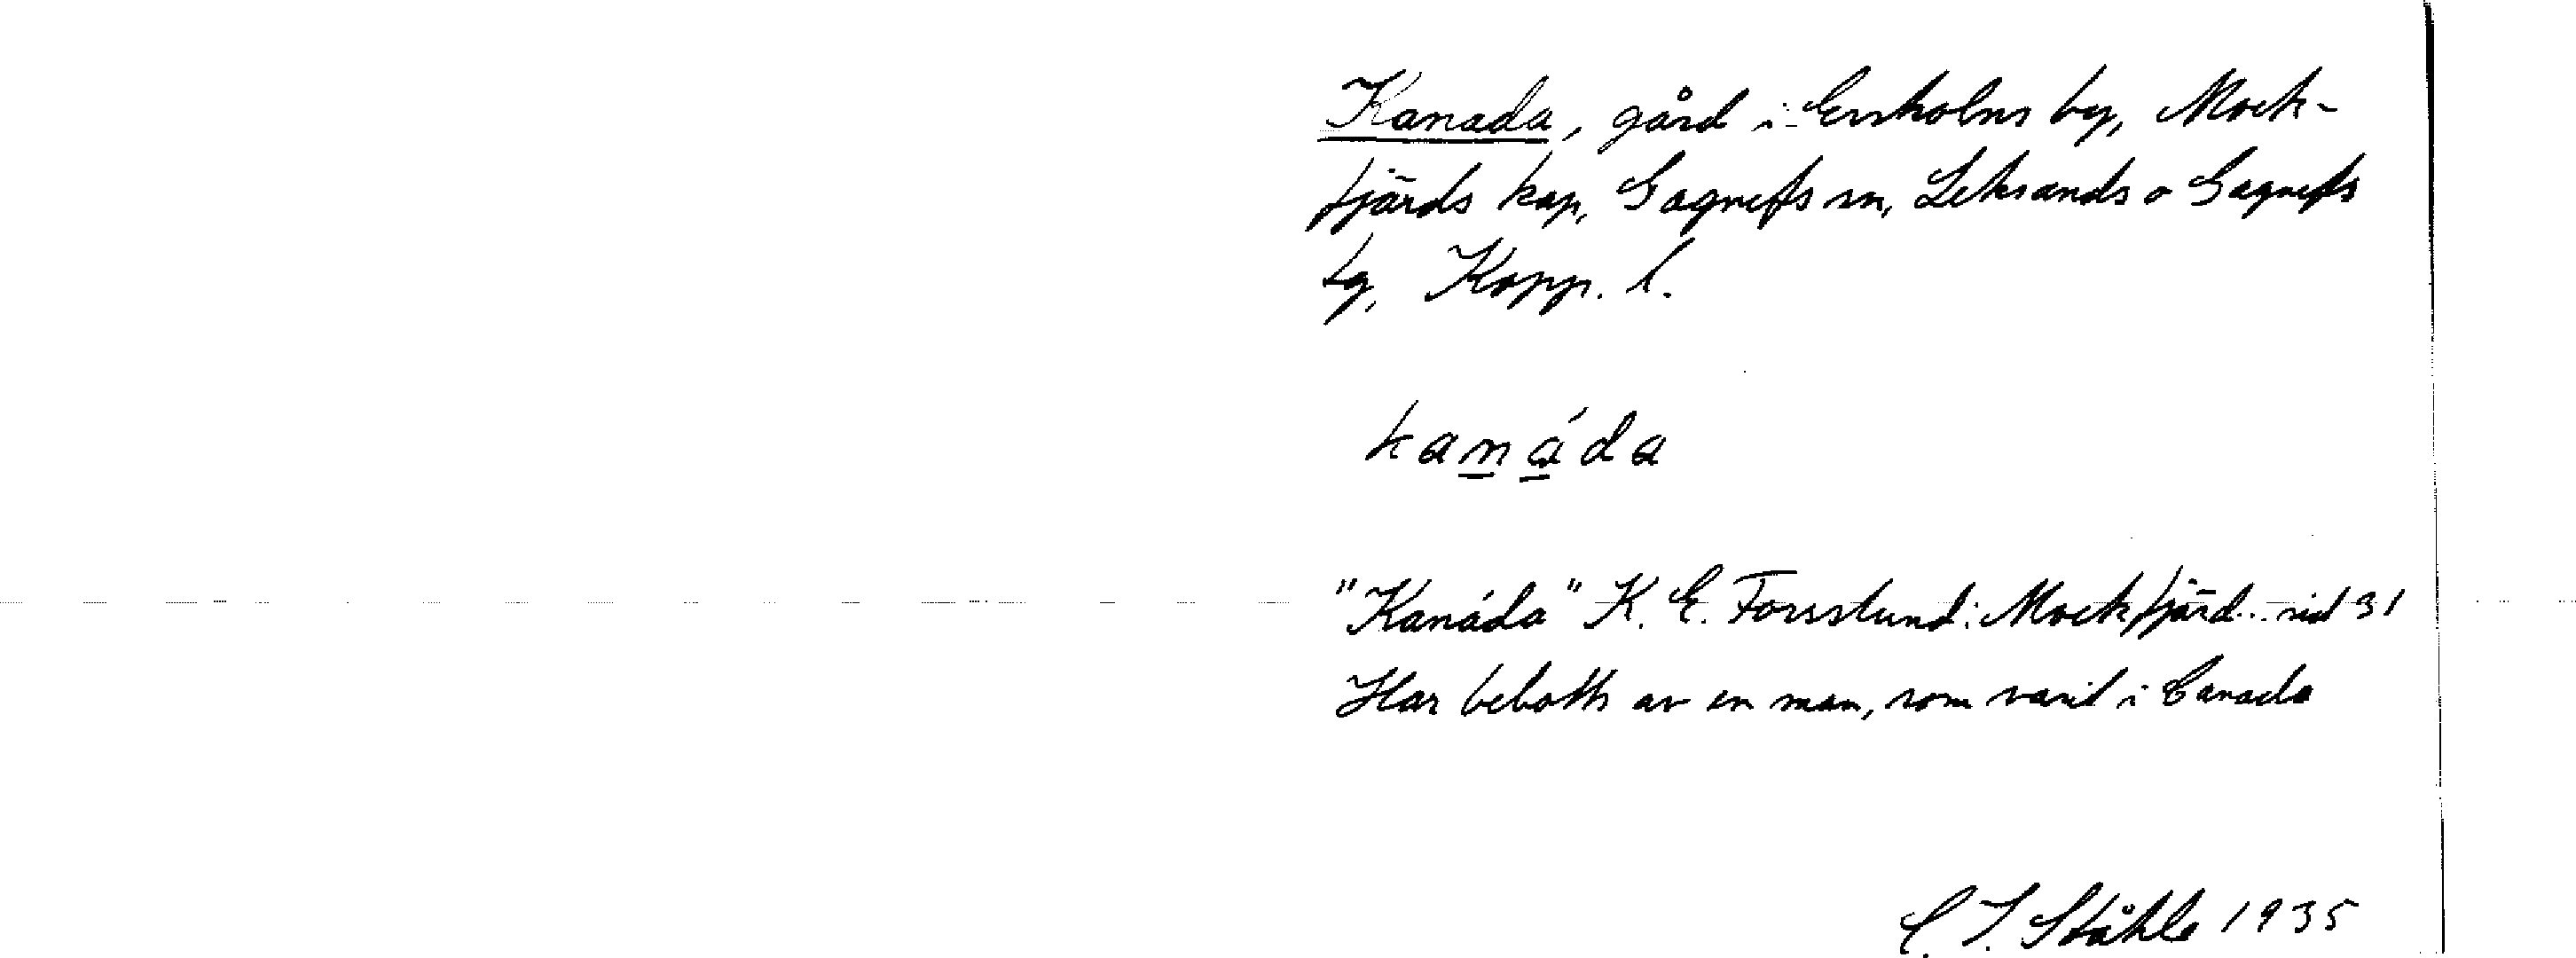 Kanada, gård i Ersholns by, Mock-
fjärds kap, Gagnefs sn, Leksands o Gagnefs
tg, Kopp. l.
kanáda
"Kanáda" K. E. Forsslund: Mockfjärd.. sid 31
Har bebotts av en man, som varit i Canada
C. I. Ståhle 1935